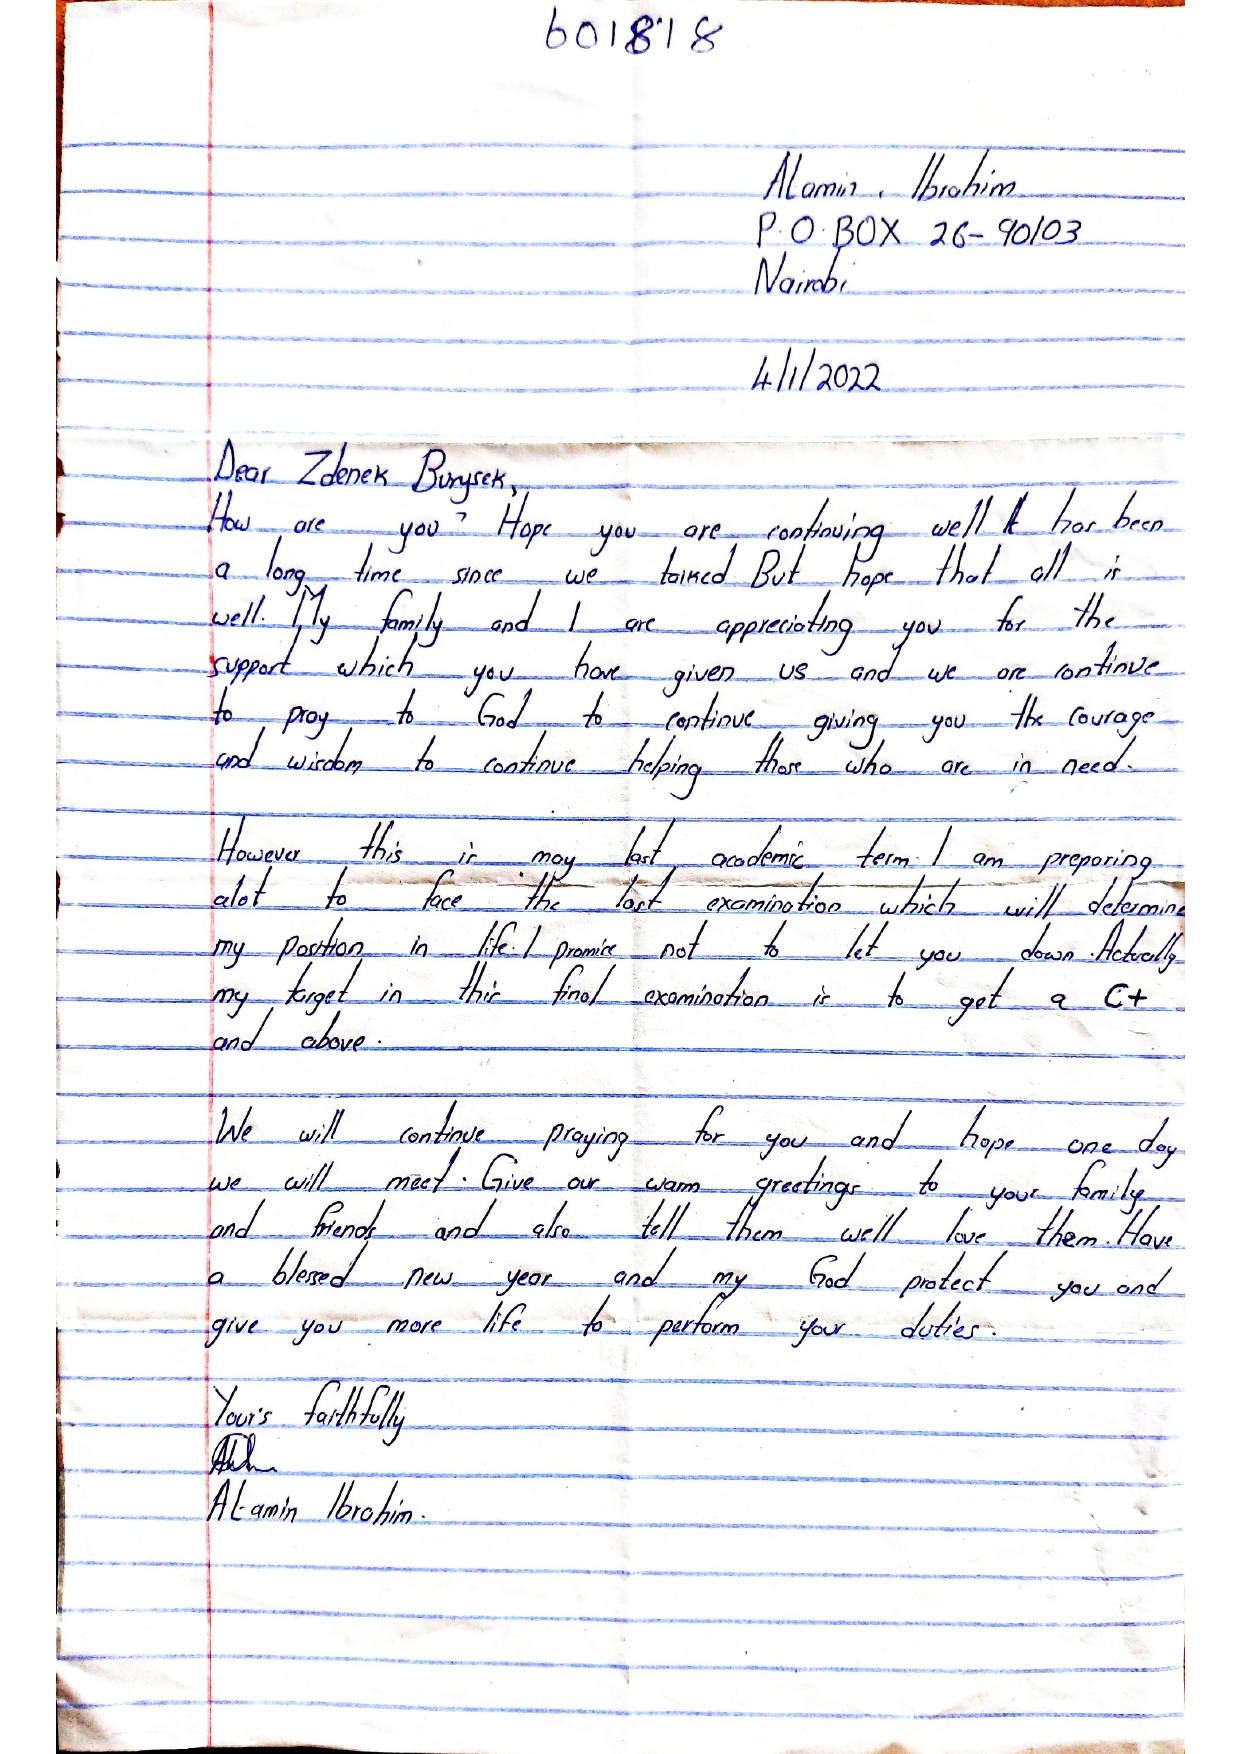 601818
Alamin . Ibrahim
P.O.BOX 26-90103
Nairobi
4/1/2022
Dear Zdenek Burysek,
How are you? Hope you are continuing well It has been
a long time since we talked But hope that all is
well. My family and I are appreciating you for the
support which you have given us and we are continue
to pray to God to continue giving you the courage
and wisdom to continue helping those who are in need.
However this is may last academic term. I am preparing
alot to face the last examination which will determine
my position in life. I promise not to let you down. Actually
my target in this final examination is to get a C+
and above.
We will continue praying for you and hope one day
we will meet. Give our warm greetings to your family
and friends and also tell them we'll love them. Have
a blessed new year and my God protect you and
give you more life to perform your duties.
Your's faithfully
Al-amin Ibrahim.